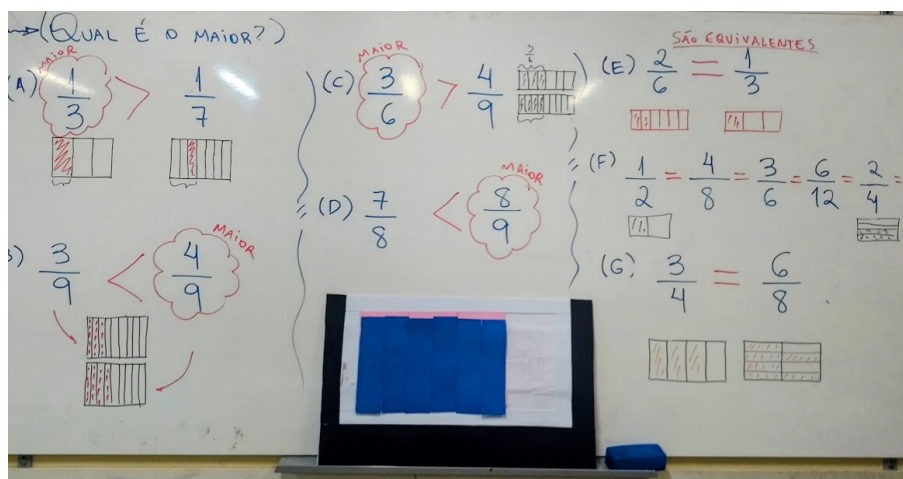 →(QUAL É O MAIOR?)
A) 1/3 > 1/7
MAIOR
) 3/9 < 4/9
MAIOR
(C) 3/6 > 4/9
MAIOR
3/6
(D) 7/8 < 8/9
MAIOR
SÃO EQUIVALENTES
(E) 2/6 = 1/3
(F) 1/2 = 4/8 = 3/6 = 6/12 = 2/4 =
(G) 3/4 = 6/8